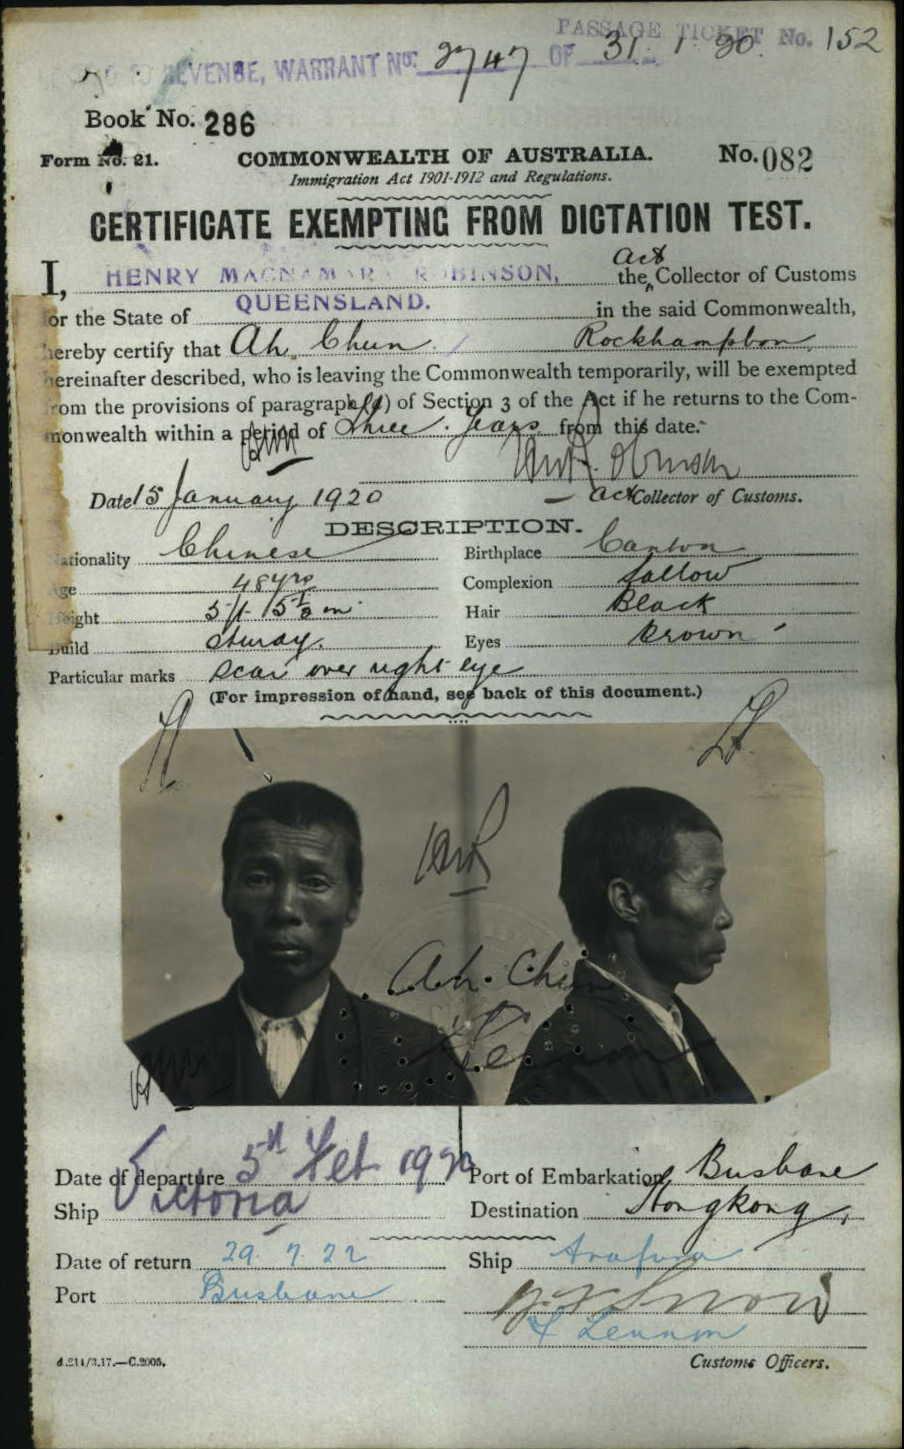 PASSAGE TICKET No. 152
REVENUE, WARRANT No. 2747 OF 31.1.20.
Book No. 286
Form No. 21.
COMMONWEALTH OF AUSTRALIA.
No. 082
Immigration Act 1901-1912 and Regulations.
CERTIFICATE EXEMPTING FROM DICTATION TEST.
I, HENRY MACNAMARA ROBINSON, the Act Collector of Customs
for the State of QUEENSLAND. in the said Commonwealth,
hereby certify that Ah Chun Rockhampton
hereinafter described, who is leaving the Commonwealth temporarily, will be exempted
from the provisions of paragraph (a) of Section 3 of the Act if he returns to the Com-
monwealth within a period of Three Years from this date.
HMR
HM Robinson
Date 15 January 1920
Act Collector of Customs.
DESCRIPTION.
Nationality Chinese
Birthplace Canton
Age 48 yrs
Complexion Sallow
Height 5 ft 5 1/2 in
Hair Black
Build Sturdy.
Eyes Brown
Particular marks Scar over right eye
(For impression of hand, see back of this document.)
HMR
Ah. Chun
Lennon
HMR
Date of departure 5th Feb 1920
Port of Embarkation Brisbane
Ship Victoria
Destination Hongkong
Date of return 29.7.22
Ship Arafura
Port Brisbane
Snow
Lennon
d.211/3.17.—C.2005.
Customs Officers.